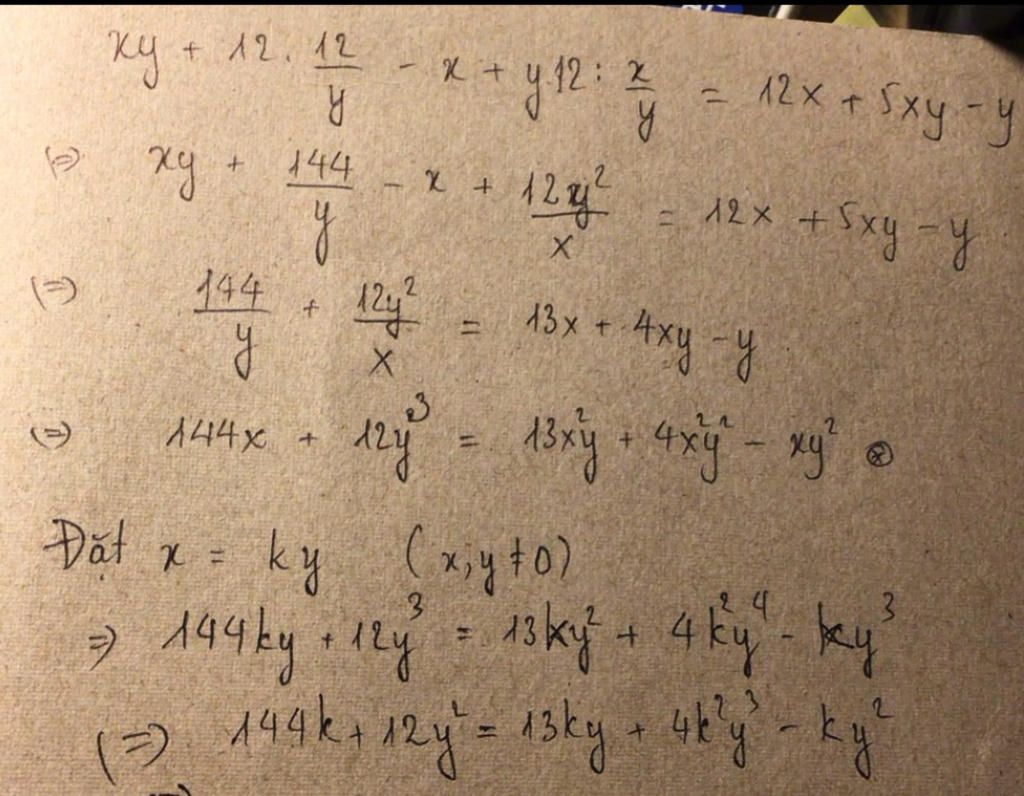 xy + 12 . 12/y - x + y.12 : x/y = 12x + 5xy - y
(=) xy + 144/y - x + 12y²/x = 12x + 5xy - y
(=) 144/y + 12y²/x = 13x + 4xy - y
(=) 144x + 12y³ = 13x²y + 4x²y² - xy² ⊛
Đặt x = ky (x, y ≠ 0)
=) 144ky + 12y³ = 13ky² + 4k²y⁴ - ky³
(=) 144k + 12y² = 13ky + 4k²y³ - ky²